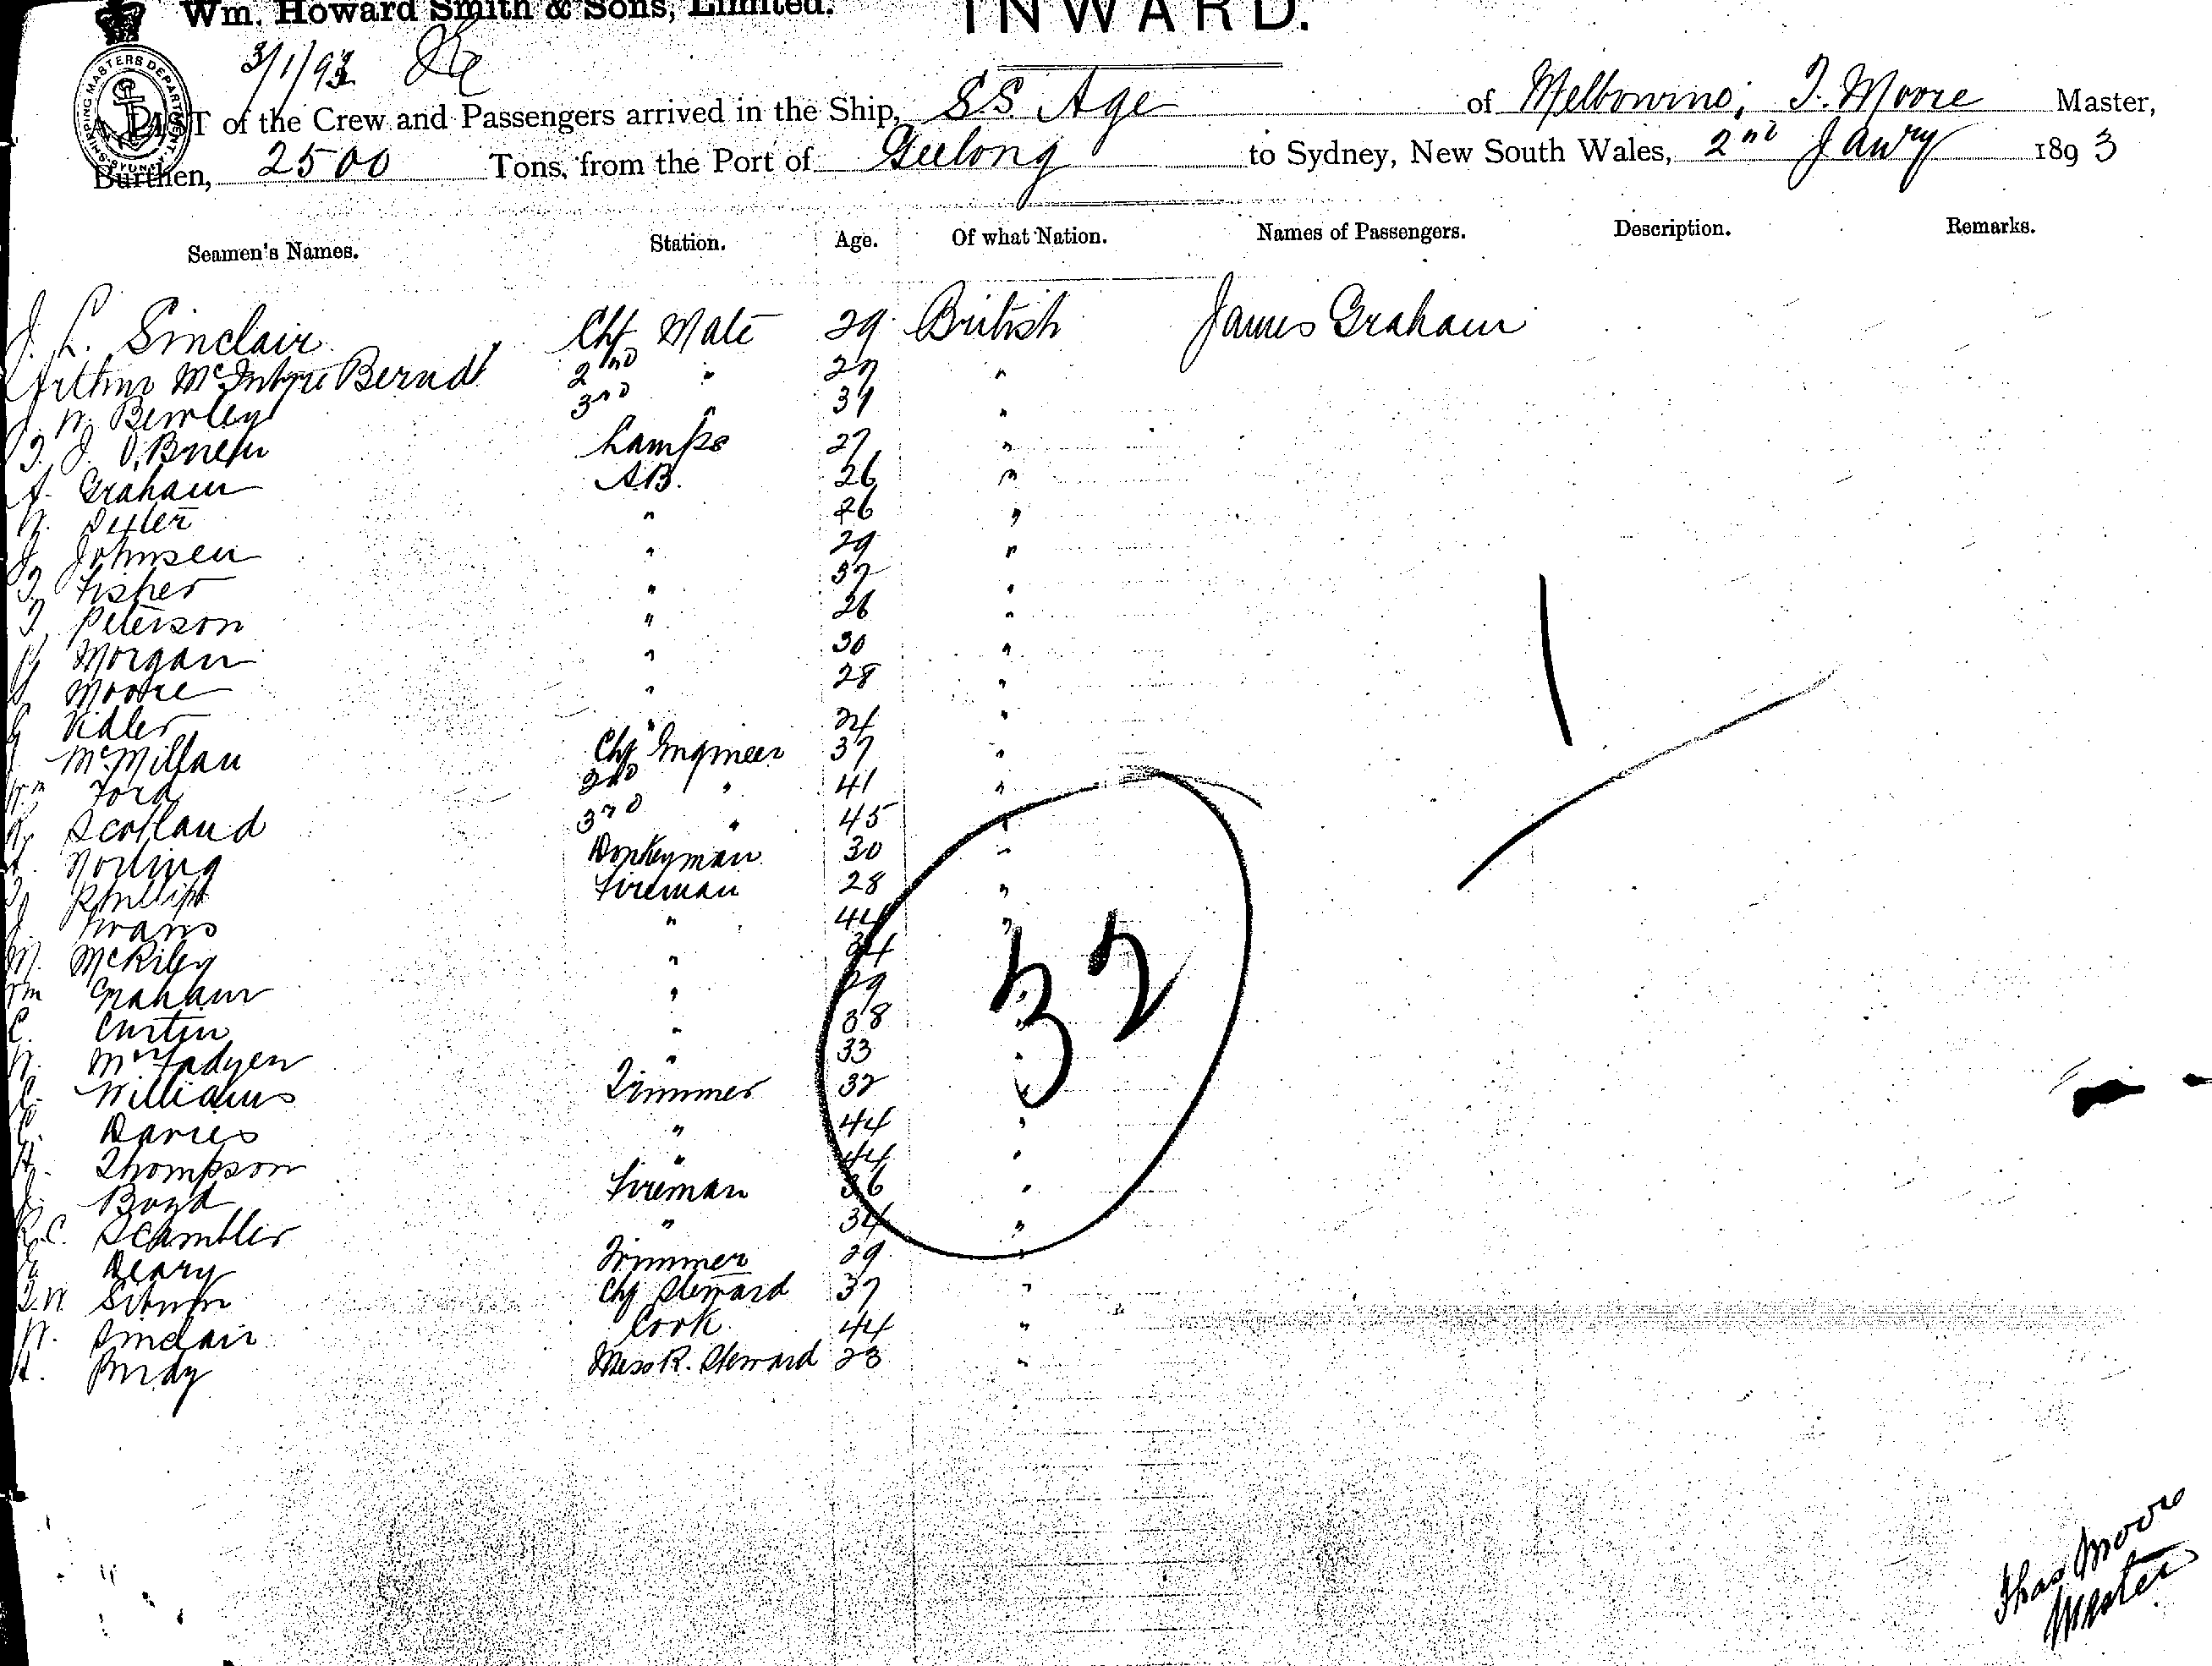 Wm. Howard Smith & Sons, Limited. INWARD.
3/1/93
LIST of the Crew and Passengers arrived in the Ship, S.S. Age of Melbourne, T. Moore Master,
Burthen, 2500 Tons, from the Port of Geelong to Sydney, New South Wales, 2nd Jany 1893
Seamen's Names. Station. Age. Of what Nation. Names of Passengers. Description. Remarks.
J. L. Sinclair Chf Mate 29 British James Graham
Arthur McIntyre Berndt 2nd " 27 "
J. W. Bewley 3rd " 31 "
T. J. O'Brien Lamps 27 "
A. Graham A.B. 26 "
W. Dexter " 26 "
J. Johnsen " 29 "
T. Fisher " 37 "
T. Peterson " 26 "
Morgan " 30 "
Moore " 28 "
Vidler " 24 "
McMillan Chf Engineer 37 "
Wm Ford 2nd " 41 "
R. Scotland 3rd " 45 "
Norling Donkeyman 30 "
Phillips Fireman 28 "
J. Evans " 44 "
M. McRiley " 34 "
Wm Graham " 29 "
C. Curtin " 38 "
W. McFadyen " 33 "
C. Williams Trimmer 32 "
C. Davies " 44 "
A. Thompson " 44 "
J. Boyd Fireman 36 "
R.C. Scambler " 34 "
Deary Trimmer 29 "
T.W. Chf Steward 37 "
W. Sinclair Cook 44 "
A. Mess R. Steward 23 "
32
Thos Moore
Master